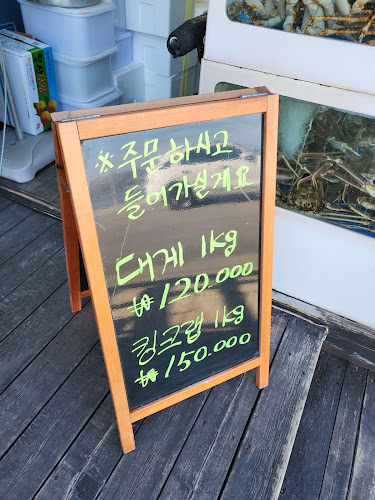 ※주문하시고
들어가실게요
대게 1kg
₩120.000
킹크랩 1kg
₩150.000